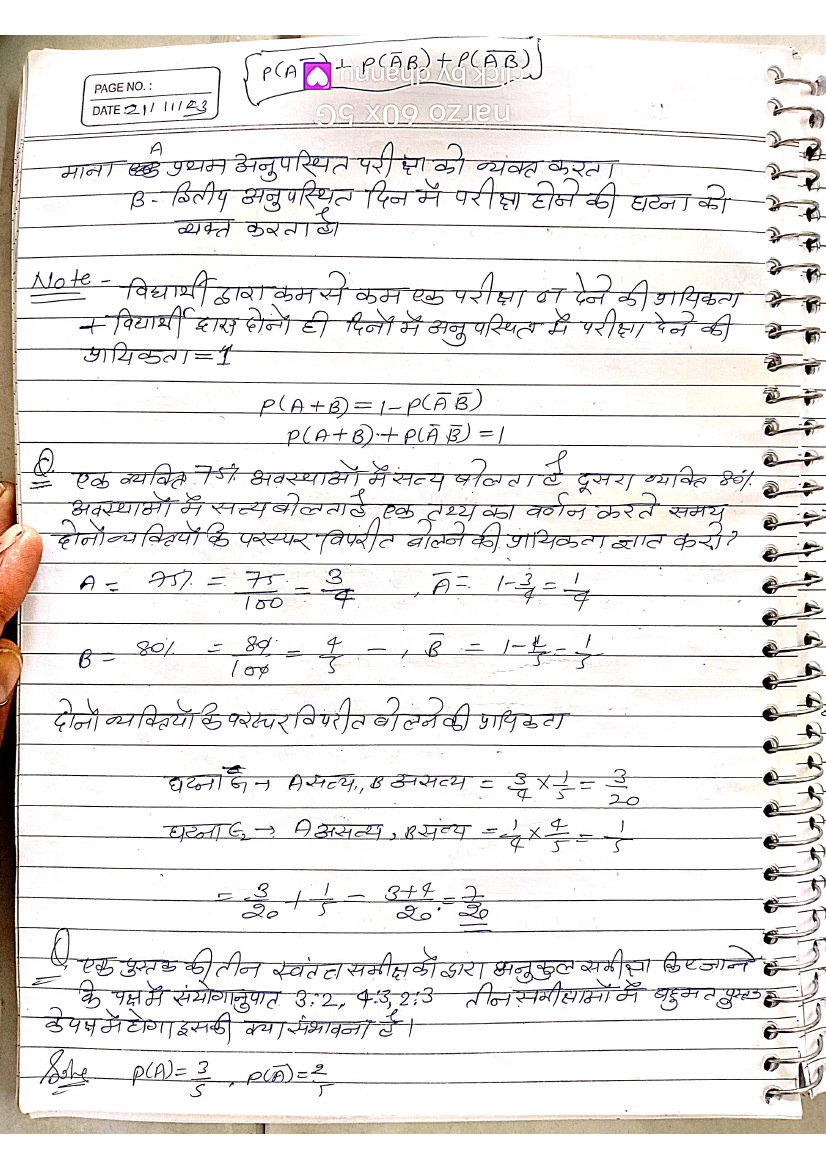 {P(A ) + P(A̅B) + P(A̅B̅)}
click by dhannu
narzo 60x 5G
PAGE NO. :
DATE : 21/11/23
A
माना प्रथम अनुपस्थित परीक्षा को व्यक्त करता
B - द्वितीय अनुपस्थित दिन में परीक्षा होने की घटना को
व्यक्त करता है।
Note - विद्यार्थी द्वारा कम से कम एक परीक्षा न देने की प्रायिकता
+ विद्यार्थी द्वारा दोनों ही दिनों में अनुपस्थित में परीक्षा देने की
प्रायिकता = 1
P(A+B) = 1 - P(A̅ B̅)
P(A+B) + P(A̅ B̅) = 1
Q एक व्यक्ति 75% अवस्थाओं में सत्य बोलता है दूसरा व्यक्ति 80%
अवस्थाओं में सत्य बोलता है एक तथ्य का वर्णन करते समय
दोनों व्यक्तियों के परस्पर विपरीत बोलने की प्रायिकता ज्ञात करो?
A = 75% = 75/100 = 3/4 , A̅ = 1 - 3/4 = 1/4
B = 80% = 80/100 = 4/5 - , B̅ = 1 - 4/5 = 1/5
दोनों व्यक्तियों के परस्पर विपरीत बोलने की प्रायिकता
घटना → A सत्य, B असत्य = 3/4 × 1/5 = 3/20
घटना → A असत्य, B सत्य = 1/4 × 4/5 = 1/5
= 3/20 + 1/5 = 3+4/20 = 7/20
Q एक पुस्तक की तीन स्वतंत्र समीक्षकों द्वारा अनुकूल समीक्षा किए जाने
के पक्ष में संयोगानुपात 3:2, 4:3, 2:3 तीन समीक्षाओं में बहुमत पुस्तक
के पक्ष में होगा इसकी क्या संभावना है।
Solve P(A) = 3/5 , P(A̅) = 2/5